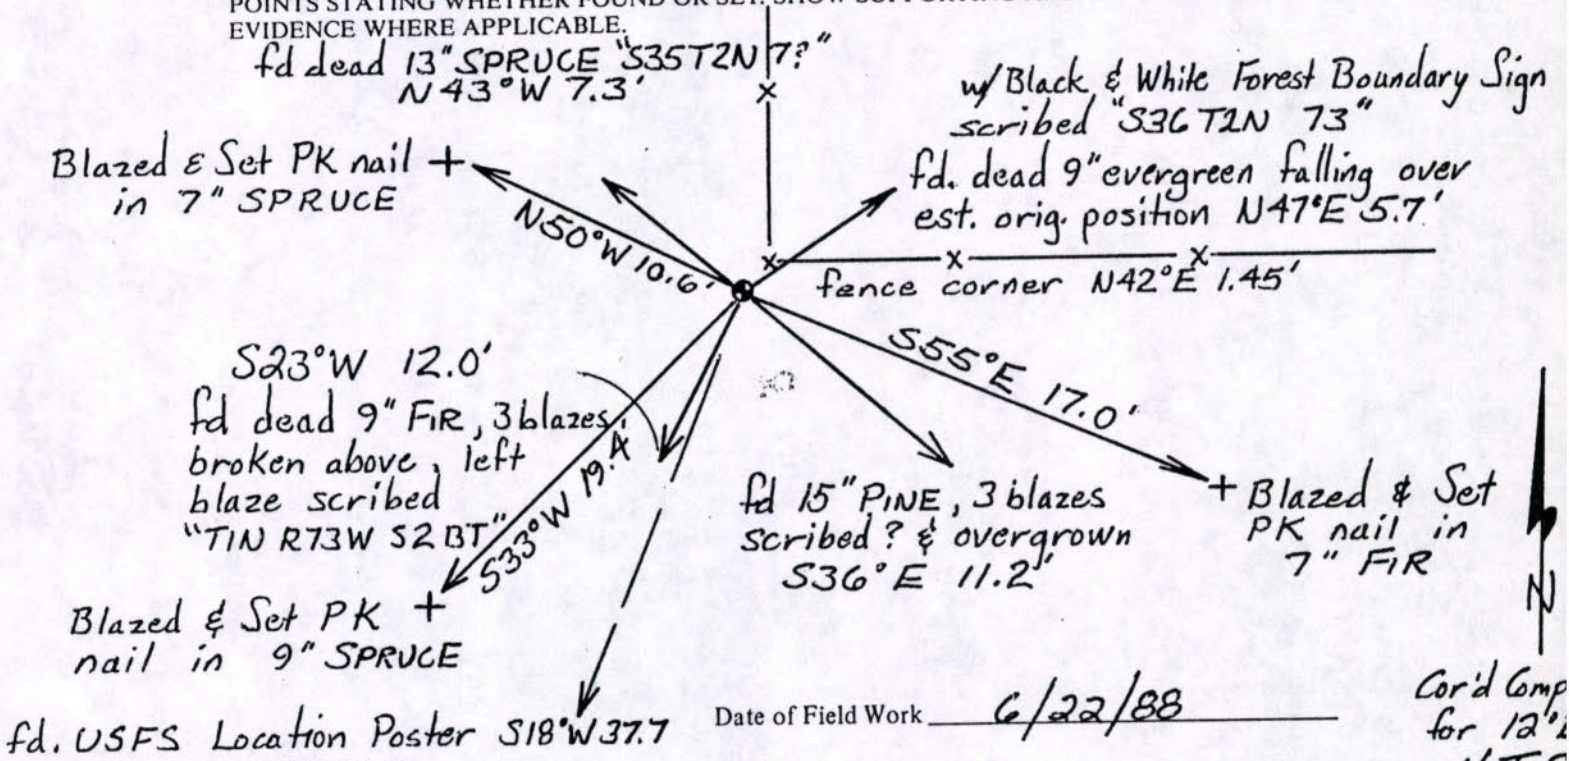 POINTS STATING WHETHER FOUND OR SET. SHOW
EVIDENCE WHERE APPLICABLE.
fd dead 13" SPRUCE "S35T2N 7?"
N43°W 7.3'
w/ Black & White Forest Boundary Sign
scribed "S36 T2N 73"
fd. dead 9" evergreen falling over
est. orig. position N47°E 5.7'
Blazed & Set PK nail +
in 7" SPRUCE
N50°W 10.6'
fence corner N42°E 1.45'
S23°W 12.0'
fd dead 9" FIR, 3 blazes,
broken above, left
blaze scribed
"T1N R73W S2 BT"
S33°W 19.4'
S55°E 17.0'
fd 15" PINE, 3 blazes
scribed ? & overgrown
S36°E 11.2'
+ Blazed & Set
PK nail in
7" FIR
N
Blazed & Set PK +
nail in 9" SPRUCE
fd. USFS Location Poster S18°W 37.7
Date of Field Work 6/22/88
Cor'd Comp
for 12°